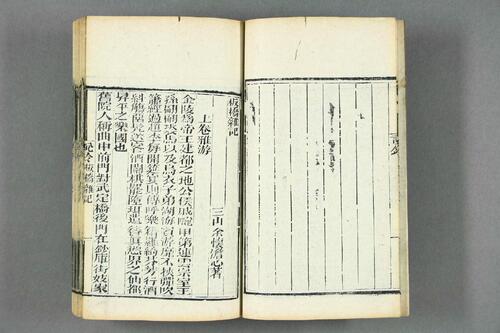 板橋雜記
三山余懷澹心著
上卷雅游
金陵為帝王建都之地公侯戚畹甲第連雲宗室王
孫翩翩裘馬以及烏衣子弟湖海賓游靡不挾彈吹
簫經過趙李每開筵宴則傳呼樂籍羅綺芬芳行酒
糾觴留髠送客酒闌棋罷墮珥遺簪真慾界之仙都
昇平之樂國也
舊院人稱曲中前門對武定橋後門在鈔庫街妓家
說鈴 板橋雜記